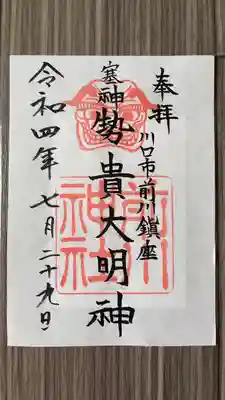 奉拝
川口市前川鎮座
塞神
勢貴大明神
令和四年 七月二十九日
前川
神社